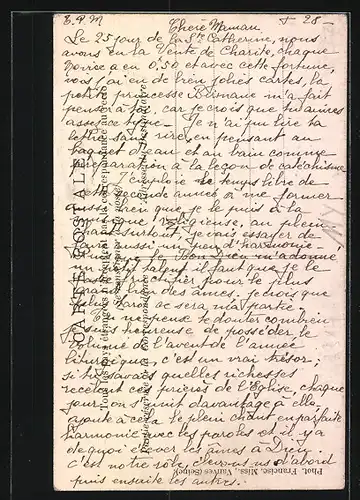 E.P.M + 28 -
Chère Maman
Le 25 jour de la Ste Catherine, nous
avons eu la Vente de Charité, chaque
Novice a eu 0,50 et avec cette fortune,
vois j'ai eu de bien jolies cartes, la
petite princesse m'a fait
penser à toi, car je crois que tu aimes
assez ce type. Je n'ai pu lire ta
lettre sans rire, en pensant au
baquet d'eau et au bain comme
préparation à la leçon de catéchisme
J'emploie le temps libre de
cette seconde année à me former
aussi bien que je le puis à la
musique religieuse, au plain
chant surtout, je vais essayer de
faire aussi un peu d'harmonie.
le Bon Dieu m'a donné
un petit talent il faut que je le
fasse fructifier pour le plus
grand bien des âmes. je n'aurais
Tu ne peux te douter combien
je suis heureuse de posséder le
volume de l'avent de l'année
liturgique, c'est un vrai trésor;
si tu savais quelles richesses
recèlent ces prières de l'Eglise, chaque
jour on s'unit davantage à elle
ajoute à cela le plain chant en parfaite
harmonie avec les paroles et il y a
de quoi élever les âmes à Dieu
c'est notre rôle, élevons nous d'abord
puis ensuite les autres.
CARTE POSTALE
Phot. Francisc. Miss. Vanves (Seine)